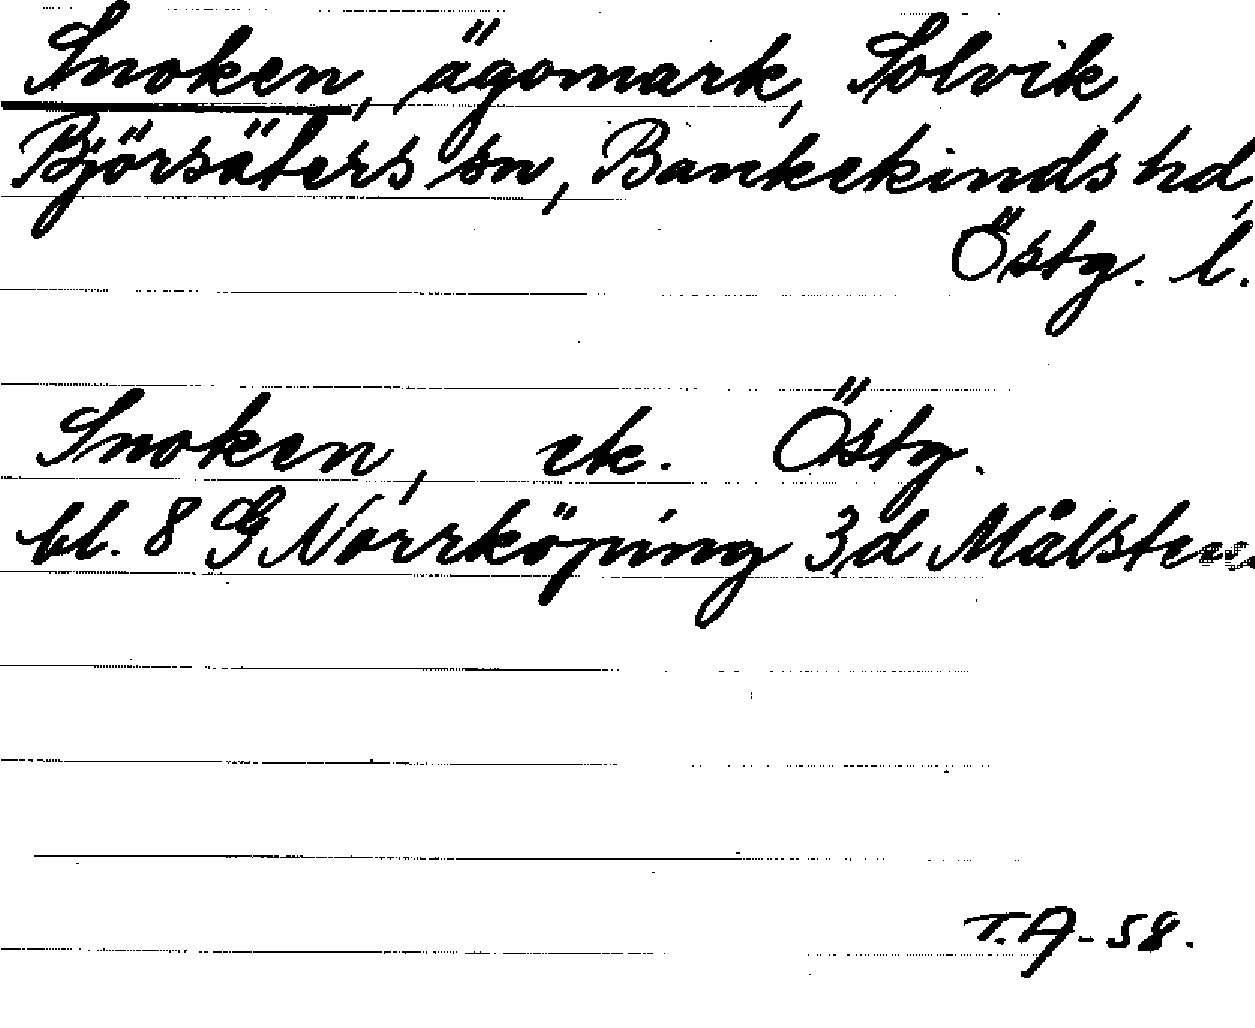 Snoken, ägomark, Solvik,
Björsäters sn, Bankekinds hd,
Östg. l.
Snoken, ek. Östg.
bl. 8 G Norrköping 3d Målsten
T.A-58.